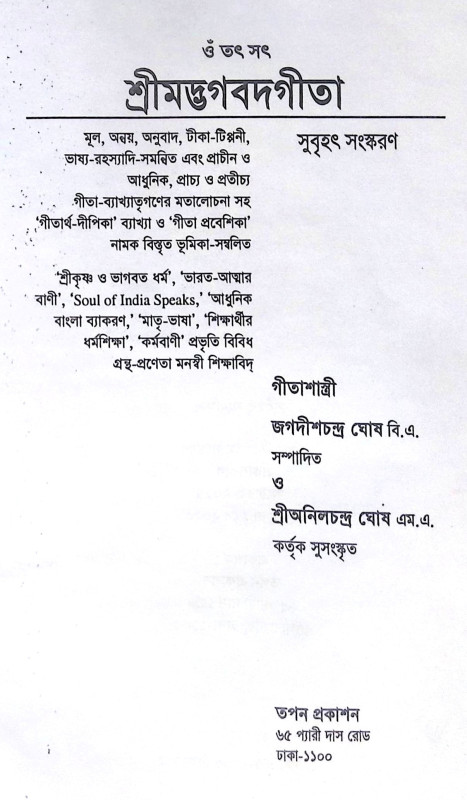 ওঁ তৎ সৎ
শ্রীমদ্ভগবদগীতা
মূল, অন্বয়, অনুবাদ, টীকা-টিপ্পনী,
ভাষ্য-রহস্যাদি-সমন্বিত এবং প্রাচীন ও
আধুনিক, প্রাচ্য ও প্রতীচ্য
গীতা-ব্যাখ্যাতৃগণের মতালোচনা সহ
‘গীতার্থ-দীপিকা’ ব্যাখ্যা ও ‘গীতা প্রবেশিকা’
নামক বিস্তৃত ভূমিকা-সম্বলিত
সুবৃহৎ সংস্করণ
‘শ্রীকৃষ্ণ ও ভাগবত ধর্ম’, ‘ভারত-আত্মার
বাণী’, ‘Soul of India Speaks,’ ‘আধুনিক
বাংলা ব্যাকরণ,’ ‘মাতৃ-ভাষা’, ‘শিক্ষার্থীর
ধর্মশিক্ষা’, ‘কর্মবাণী’ প্রভৃতি বিবিধ
গ্রন্থ-প্রণেতা মনস্বী শিক্ষাবিদ্
গীতাশাস্ত্রী
জগদীশচন্দ্র ঘোষ বি.এ.
সম্পাদিত
ও
শ্রীঅনিলচন্দ্র ঘোষ এম.এ.
কর্তৃক সুসংস্কৃত
তপন প্রকাশন
৬৫ প্যারী দাস রোড
ঢাকা-১১০০